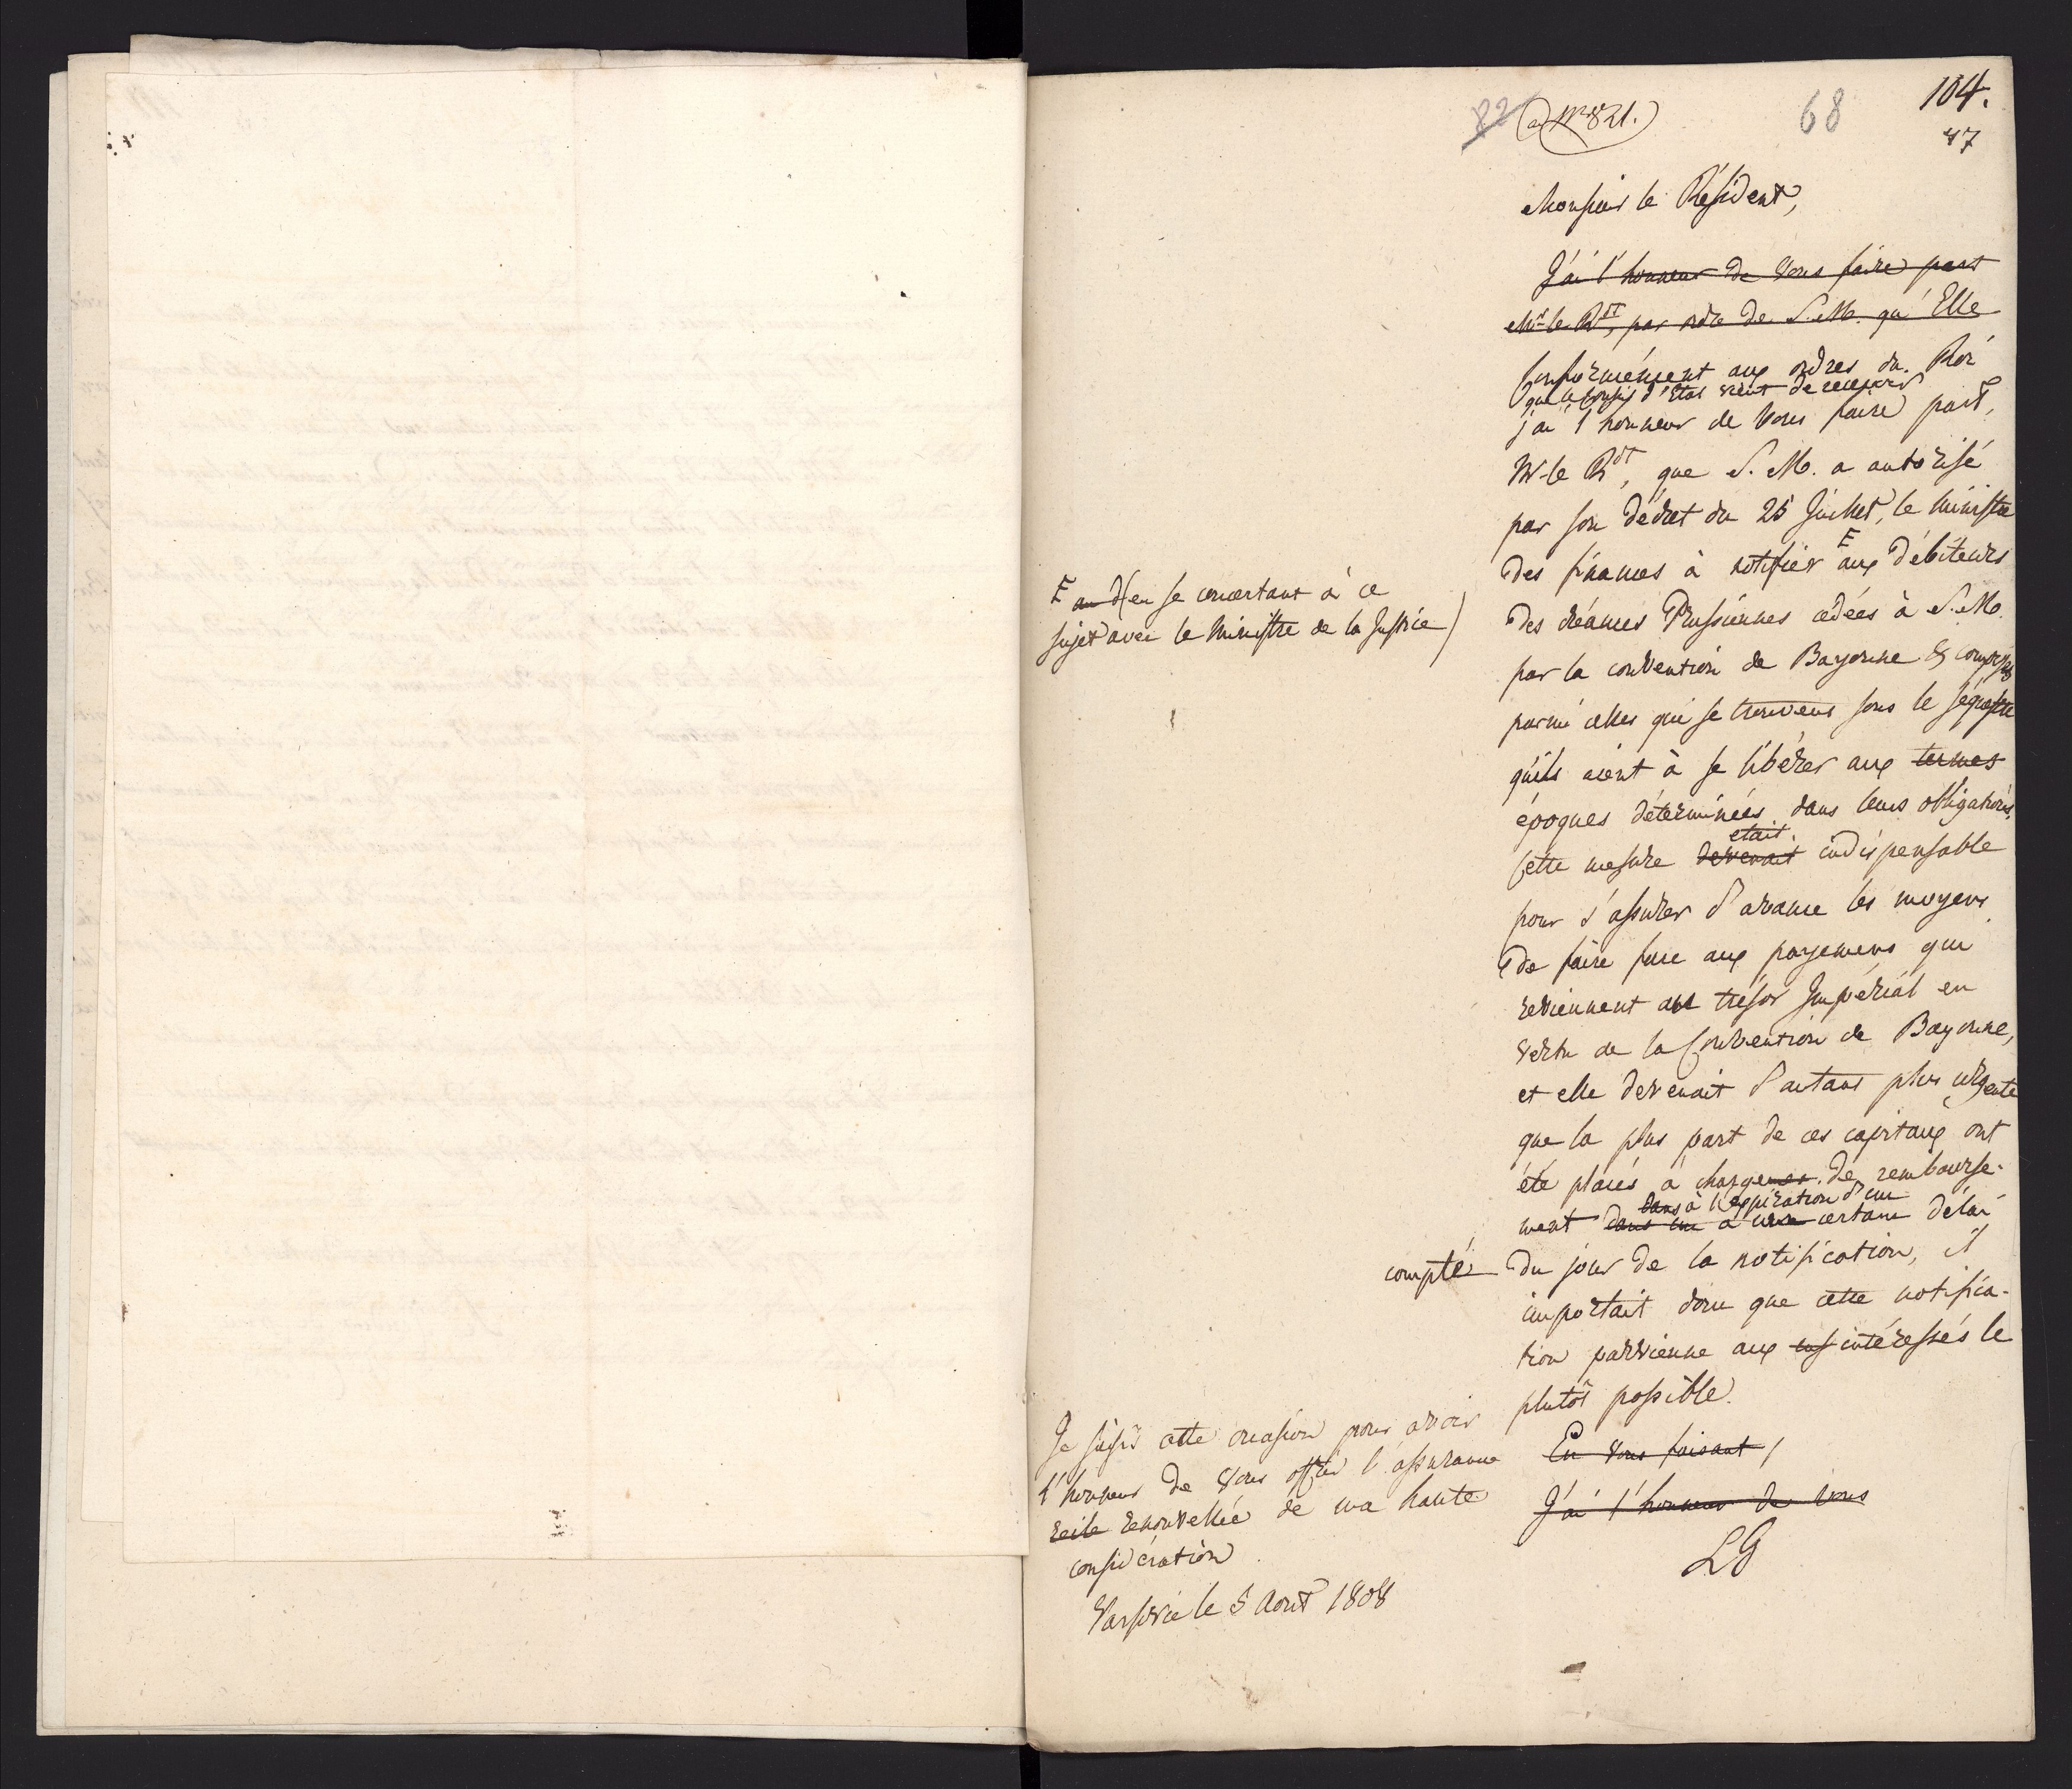 82 (ad Nr 821.) 68 104.
87
Monsieur le Résident,
J'ai l'honneur de Vous faire part
Mr le Rdt, par ordre de S. M. qu'Elle
Conformément aux ordres du Roi
que le Conseil d'Etat vient de recevoir
j'ai l'honneur de Vous faire part,
Mr le Rdt, que S. M. a autorisé
par son décret du 25 Juillet, le Ministre
des finances à notifier aux débiteurs
(en se concertant à ce
sujet avec le Ministre de la Justice)
des créances Prussiennes cédées à S. M.
par la convention de Bayonne & comprises
parmi celles qui se trouvent sous le séquestre
qu'ils aient à se libérer aux termes
époques déterminées dans leurs obligations,
était
Cette mesure devenait indispensable
pour s'assurer d'avance les moyens
de faire face aux payemens qui
reviennent au trésor Impérial en
vertu de la Convention de Bayonne,
et elle devenait d'autant plus urgente
que la plus part de ces capitaux ont
été placés à charge de rembourse-
dans à l'expiration d'un
ment dans un à certain délai
compté du jour de la notification, il
importait donc que cette notifica-
tion parvienne aux intéressés le
plutôt possible.
En Vous faisant
J'ai l'honneur de Vous
LG
Je saisis cette occasion pour avoir
l'honneur de Vous offrir l'assurance
renouvellée de ma haute
considération
Varsovie le 5 Aout 1808